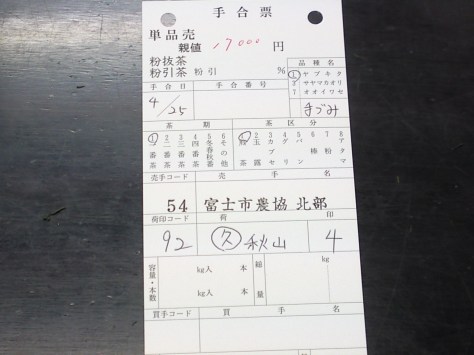 手合票
単品売
親値 17000 円
粉抜茶
粉引茶 粉引 %
品種名
1 ヤブキタ
2 サヤマカオリ
7 オオイワセ
手づみ
手合日 手合番号
4/25
茶期 茶区分
1 二 三 四 冬春秋 その他
番茶 番茶 番茶 番茶
1 2 3 4 5 6 7 8
煎茶 玉露 カブセ グリ ガンマ 棒 粉
売手コード 売手名
54 富士市農協 北部
荷印コード 荷印
92 久 秋山 4
容量・本数 kg入 本 総量 kg
kg入 本
買手コード 買手名